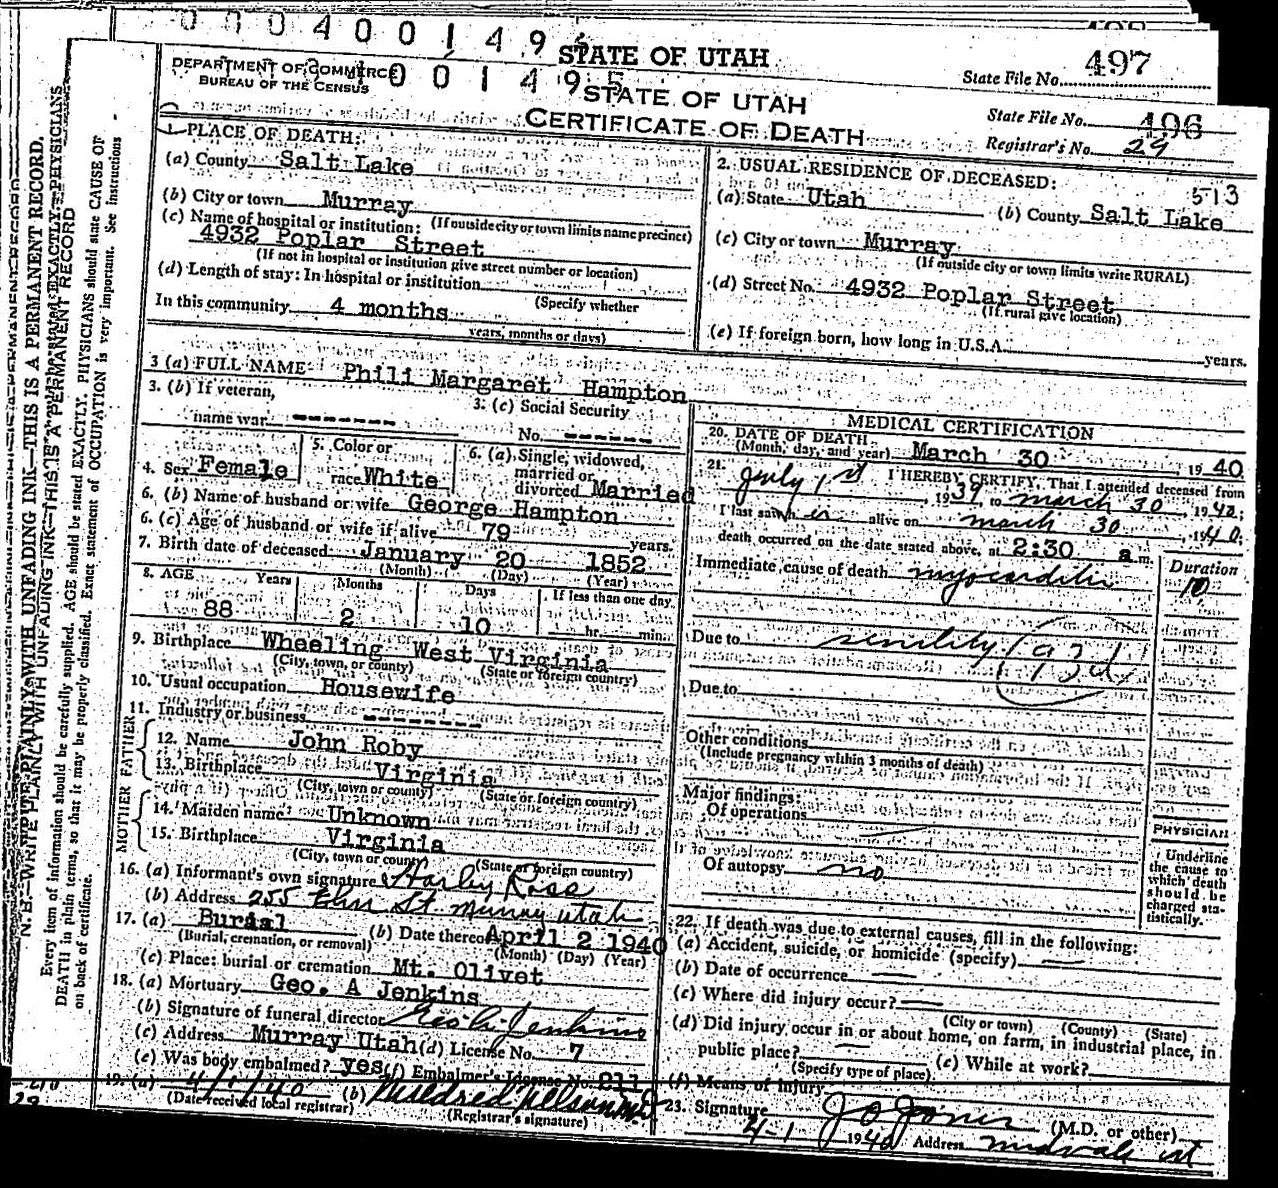 0 0 0 4 0 0 1 4 9 5
STATE OF UTAH
497
State File No.
DEPARTMENT OF COMMERCE
BUREAU OF THE CENSUS
0 0 1 4 9 5
STATE OF UTAH
CERTIFICATE OF DEATH
State File No. 496
Registrar's No. 29
1. PLACE OF DEATH:
(a) County Salt Lake
(b) City or town Murray
(If outside city or town limits name precinct)
(c) Name of hospital or institution:
4932 Poplar Street
(If not in hospital or institution give street number or location)
(d) Length of stay: In hospital or institution
(Specify whether
In this community 4 months
years, months or days)
2. USUAL RESIDENCE OF DECEASED:
513
(a) State Utah (b) County Salt Lake
(c) City or town Murray
(If outside city or town limits write RURAL)
(d) Street No. 4932 Poplar Street
(If rural give location)
(e) If foreign born, how long in U.S.A. years.
3 (a) FULL NAME Phili Margaret Hampton
3. (b) If veteran,
name war ------
3. (c) Social Security
No. ------
4. Sex Female
5. Color or
race White
6. (a) Single, widowed,
married or
divorced Married
6. (b) Name of husband or wife George Hampton
6. (c) Age of husband or wife if alive 79 years.
7. Birth date of deceased January 20 1852
(Month) (Day) (Year)
8. AGE Years Months Days If less than one day
88 2 10 hr. min.
9. Birthplace Wheeling West Virginia
(City, town, or county) (State or foreign country)
10. Usual occupation Housewife
11. Industry or business -------
FATHER
12. Name John Roby
13. Birthplace Virginia
(City, town or county) (State or foreign country)
MOTHER
14. Maiden name Unknown
15. Birthplace Virginia
(City, town or county) (State or foreign country)
16. (a) Informant's own signature Harley Ross
(b) Address 255 Elm St. Murray Utah
17. (a) Burial (b) Date thereof April 2 1940
(Burial, cremation, or removal) (Month) (Day) (Year)
(c) Place: burial or cremation Mt. Olivet
18. (a) Mortuary Geo. A Jenkins
(b) Signature of funeral director Geo. A. Jenkins
(c) Address Murray Utah (d) License No. 7
(e) Was body embalmed? yes (f) Embalmer's License No. 211
19. (a) 4/1/40 (b) Mildred Nelson
(Date received local registrar) (Registrar's signature)
MEDICAL CERTIFICATION
20. DATE OF DEATH March 30 1940
(Month, day, and year)
21. I HEREBY CERTIFY, That I attended deceased from
July 1st 1939 to March 30, 1940;
I last saw her alive on March 30, 1940;
death occurred on the date stated above, at 2:30 a m.
Immediate cause of death myocarditis
Duration
10
Due to senility 93d
Due to
Other conditions
(Include pregnancy within 3 months of death)
Major findings:
Of operations
Of autopsy no
PHYSICIAN
Underline
the cause to
which death
should be
charged sta-
tistically.
22. If death was due to external causes, fill in the following:
(a) Accident, suicide, or homicide (specify)
(b) Date of occurrence
(c) Where did injury occur?
(City or town) (County) (State)
(d) Did injury occur in or about home, on farm, in industrial place, in
public place? (e) While at work?
(Specify type of place)
(f) Means of injury
23. Signature J O Jones (M.D. or other)
4-1 1940 Address Midvale Ut
N. B.—WRITE PLAINLY WITH UNFADING INK—THIS IS A PERMANENT RECORD.
Every item of information should be carefully supplied. AGE should be stated EXACTLY. PHYSICIANS should state CAUSE OF
DEATH in plain terms, so that it may be properly classified. Exact statement of OCCUPATION is very important. See instructions
on back of certificate.